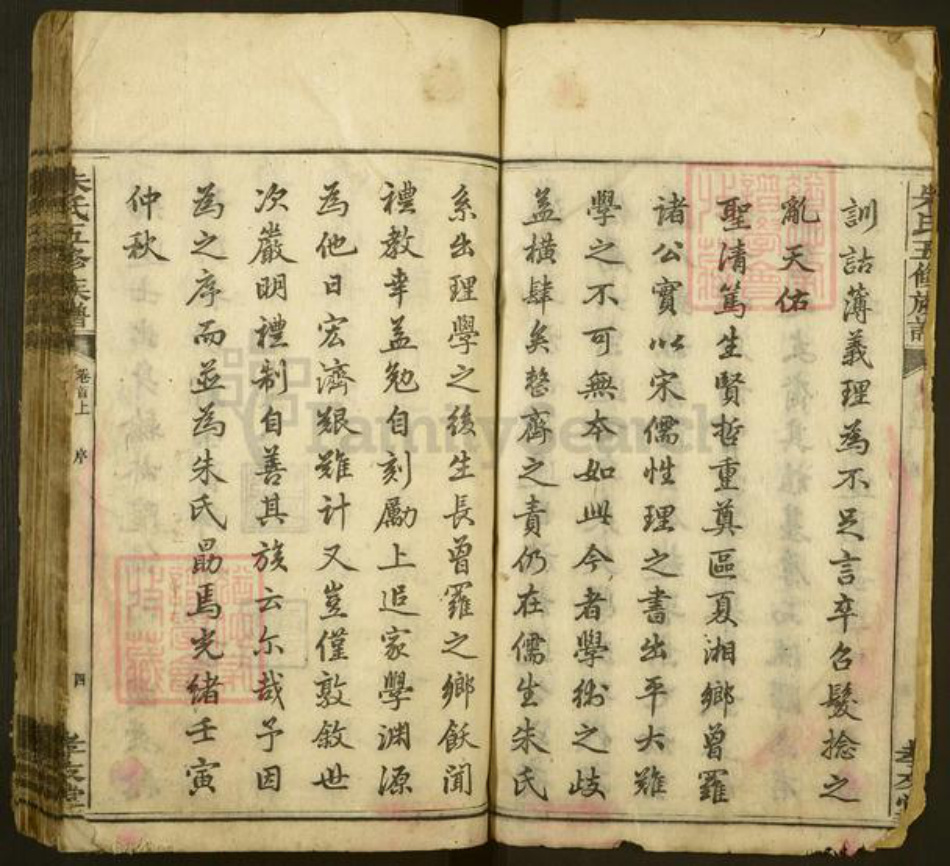 朱氏五修族譜
訓詁薄義理為不足言卒召髮捻之
亂天佑
聖清篤生賢哲重奠區夏湘鄉曾羅
諸公實以宋儒性理之書出平大難
學之不可無本如此今者學術之歧
益橫肆矣整齊之責仍在儒生朱氏
系出理學之後生長曾羅之鄉飫聞
禮教幸益勉自刻勵上追家學淵源
為他日宏濟艱難計又豈僅敦敘世
次嚴明禮制自善其族云尓哉予因
為之序而並為朱氏勗焉光緒壬寅
仲秋
朱氏五修族譜
卷首上
序
四
孝友堂
FamilySearch